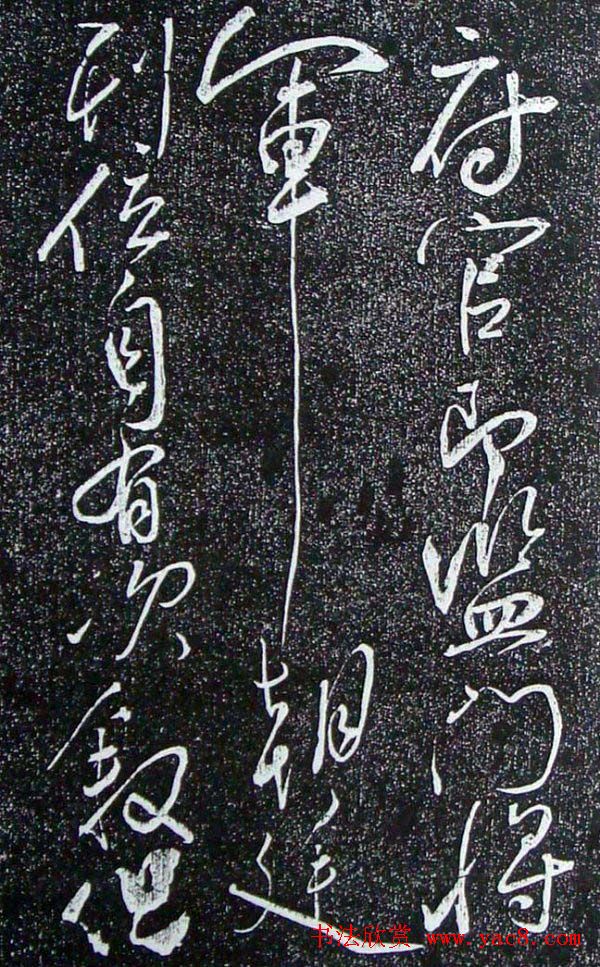 府官即监门将
军朝廷
列位自有次叙但
书法欣赏 www.yac8.com